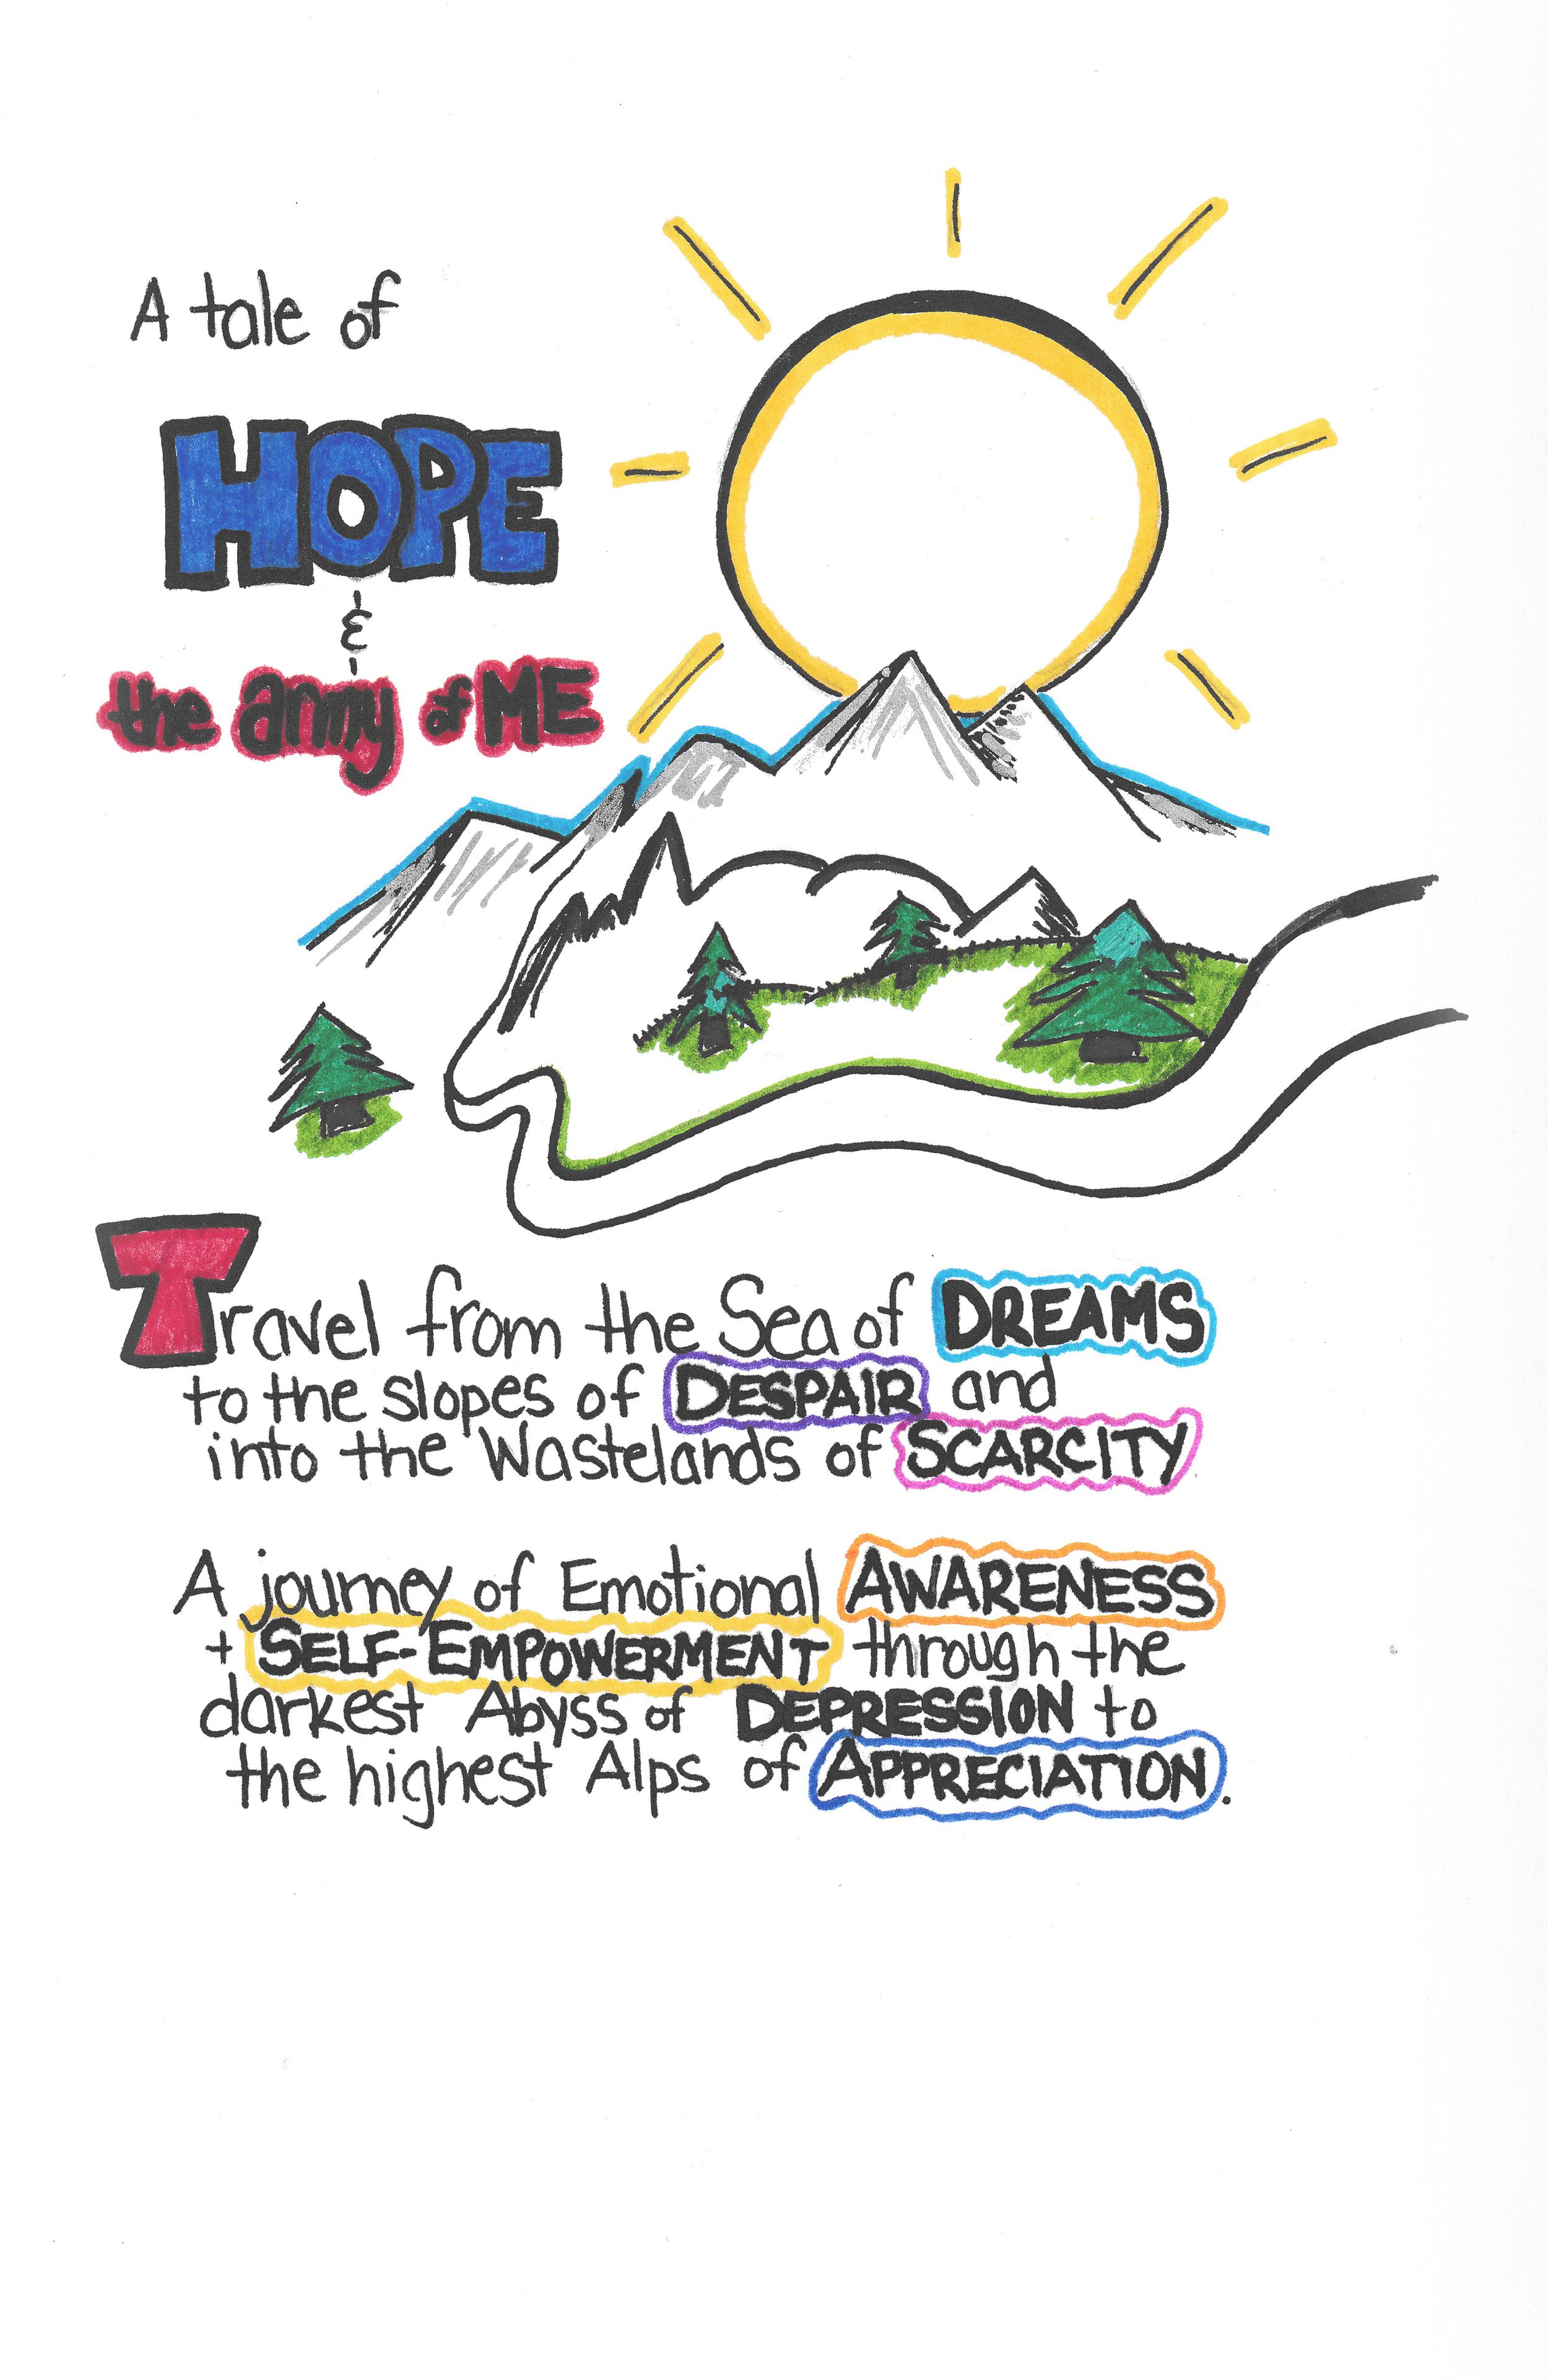 A tale of
HOPE
&
the army of ME
Travel from the Sea of DREAMS
to the slopes of DESPAIR and
into the Wastelands of SCARCITY
A journey of Emotional AWARENESS
+ SELF-EMPOWERMENT through the
darkest Abyss of DEPRESSION to
the highest Alps of APPRECIATION.